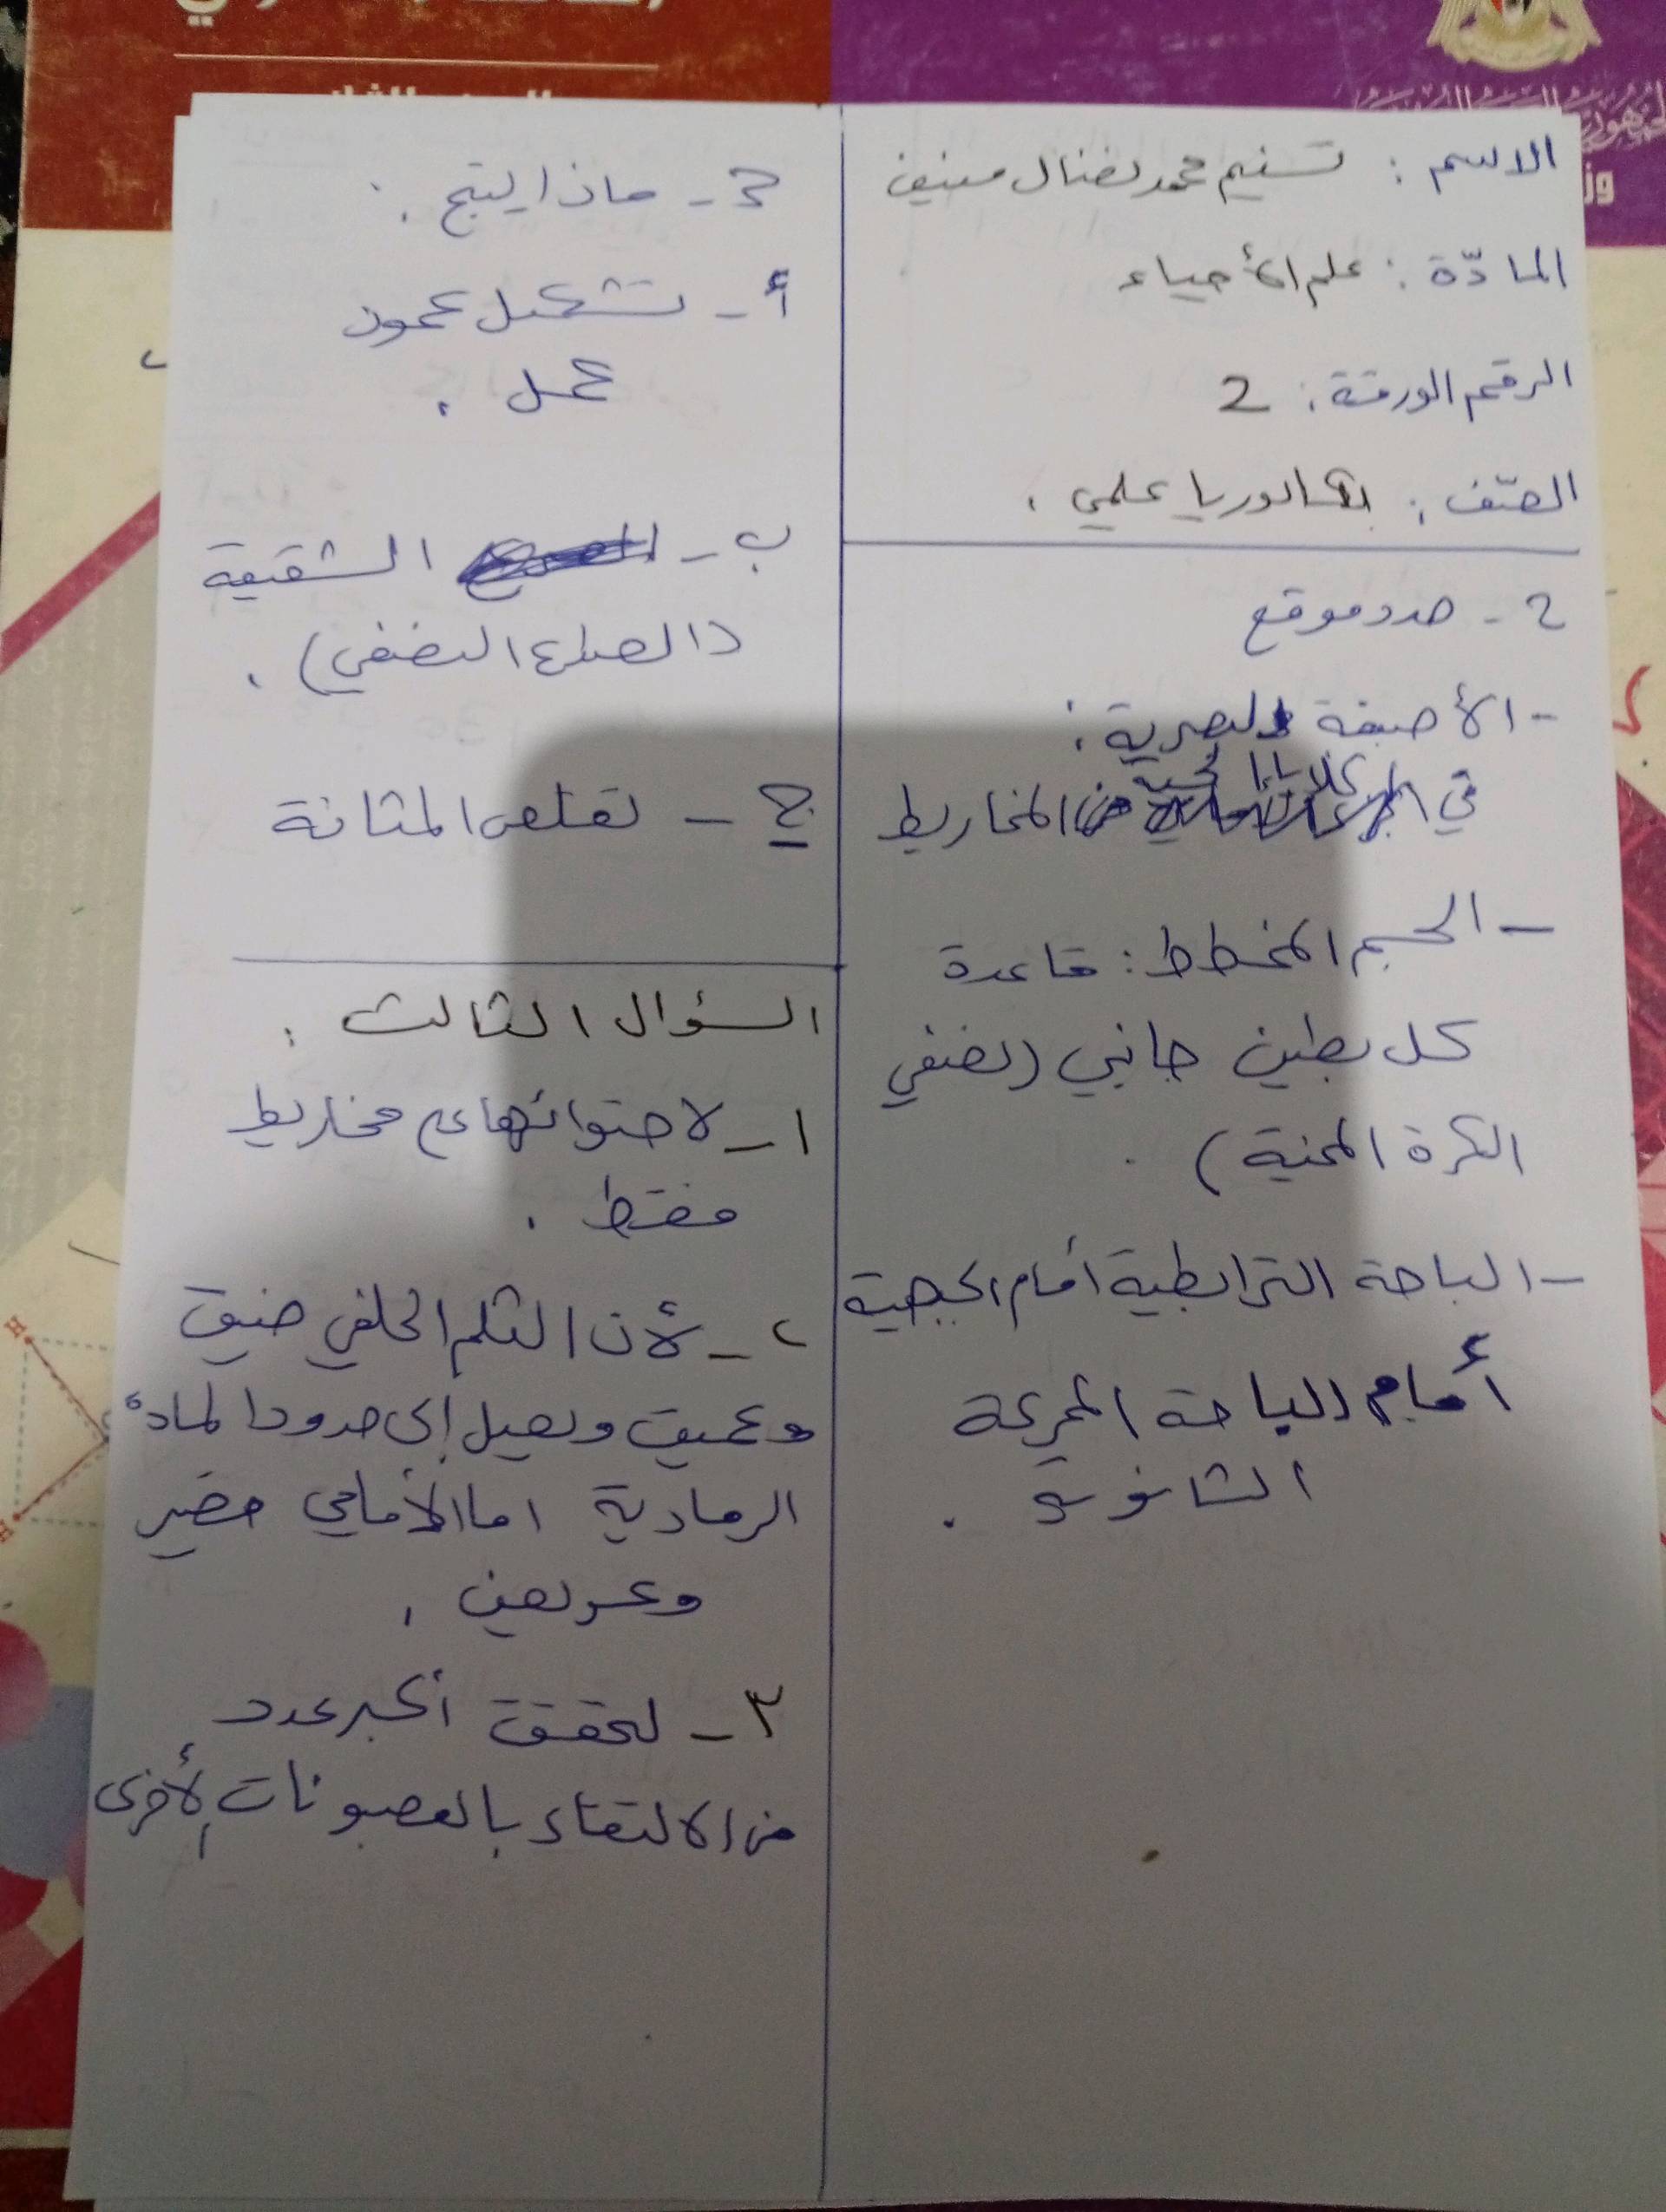 الاسم : تسنيم محمد نضال منيف
المادّة : علم الأحياء
الرقم الورقة : 2
الصّف : بكالوريا علمي .
2 - حدد موقع
- الأصبغة البصرية :
في المخاريط
- الجسم المخطط : قاعدة
كل بطين جانبي (نصفي
الكرة المخية) .
- الباحة الترابطية أمام الجبهية
أمام الباحة المحركة
الثانوية .
3 - ماذا ينتج :
أ - تشكيل كمون
عمل .
ب - الشقيقة
(الصداع النصفي) .
ج - تقلص المثانة
السؤال الثالث :
1 - لاحتوائها على مخاريط
فقط .
2 - لأن الثلم الخلفي ضيق
وعميق ويصل إلى حدود المادة
الرمادية اما الأمامي قصير
وعريض .
3 - لتحقق أكبر عدد
من الالتقاء بالعصبونات الأخرى